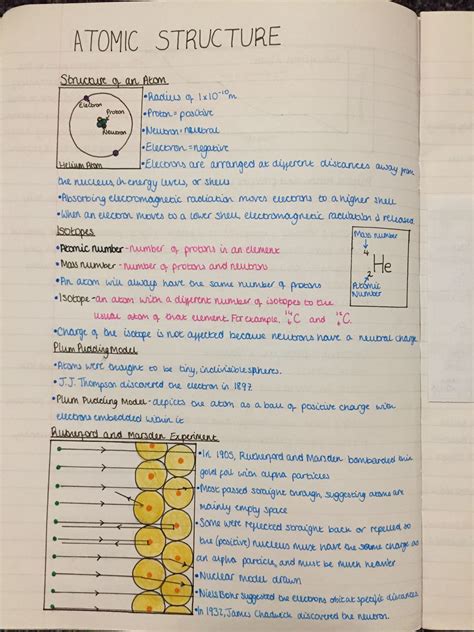 ATOMIC STRUCTURE
Structure of an Atom
Electron
Proton
Neutron
Helium Atom
•Radius of 1x10⁻¹⁰m
•Proton = positive
•Neutron = neutral
•Electron = negative
•Electrons are arranged at different distances away from
the nucleus in energy levels, or shells
•Absorbing electromagnetic radiation moves electrons to a higher shell
•When an electron moves to a lower shell, electromagnetic radiation is released
Isotopes
•Atomic number - number of protons in an element
•Mass number - number of protons and neutrons
•An atom will always have the same number of protons
•Isotope - an atom with a different number of isotopes to the
usual atom of that element. For example, ¹⁴₆C and ¹²₆C.
•Charge of the isotope is not affected because neutrons have a neutral charge
Mass number
4
He
2
Atomic
Number
Plum Pudding Model
•Atoms were thought to be tiny, indivisible spheres.
•J.J. Thompson discovered the electron in 1897
•Plum Pudding Model - depicts the atom as a ball of positive charge with
electrons embedded within it
Rutherford and Marsden Experiment
•In 1905, Rutherford and Marsden bombarded thin
gold foil with alpha particles
•Most passed straight through, suggesting atoms are
mainly empty space
•Some were reflected straight back or repelled so
the (positive) nucleus must have the same charge as
an alpha particle, and must be much heavier
•Nuclear model drawn
•Niels Bohr suggested the electrons orbit at specific distances
•In 1932, James Chadwick discovered the neutron.